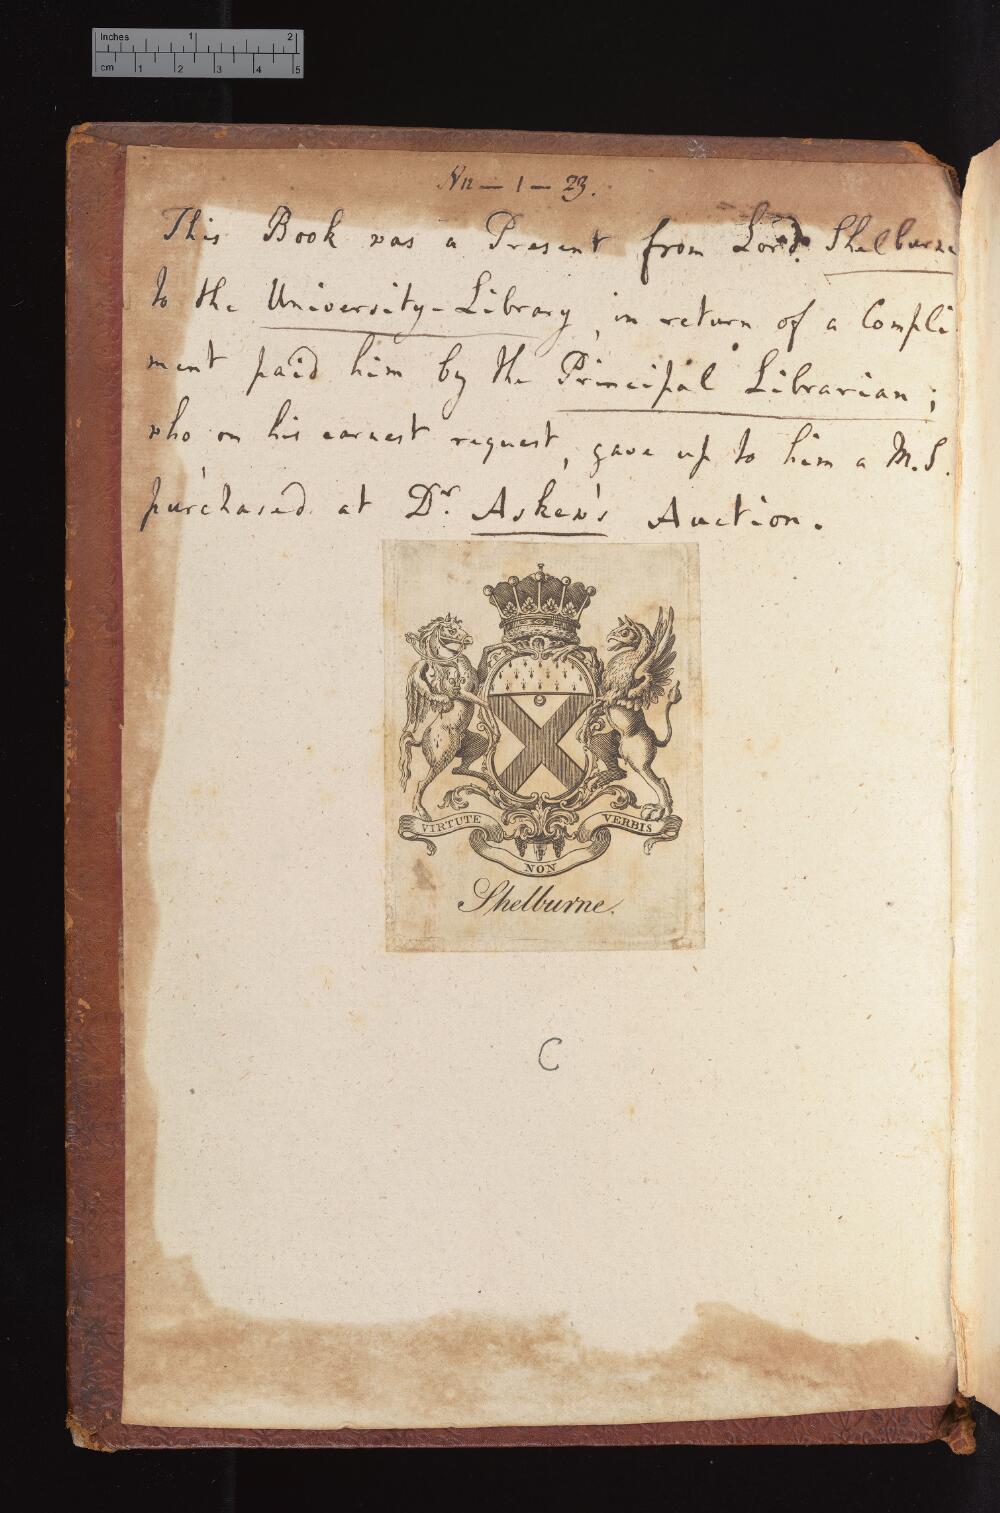 Inches 1 2
cm 1 2 3 4 5
Nn — 1 — 23.
This Book was a Present from Lord Shelburne
to the University-Library, in return of a Compli-
ment paid him by the Principal Librarian;
who on his earnest request, gave up to him a M.S.
purchased at Dr. Askew's Auction.
VIRTUTE NON VERBIS
Shelburne.
C